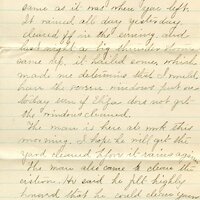 same as it was where you left.
It rained all day yesterday
cleared off in the evening, and
last night a big thunder storm
came up, it hailed some, which
made me determine that I would
have the screen windows put on
to-day even if Elijas does not get
the windows cleaned.
The man is here at work this
morning. I hope he will get the
yard cleaned before it rains again,
The man also came to clean the
cistern. He said he felt highly
honored that he could clean your